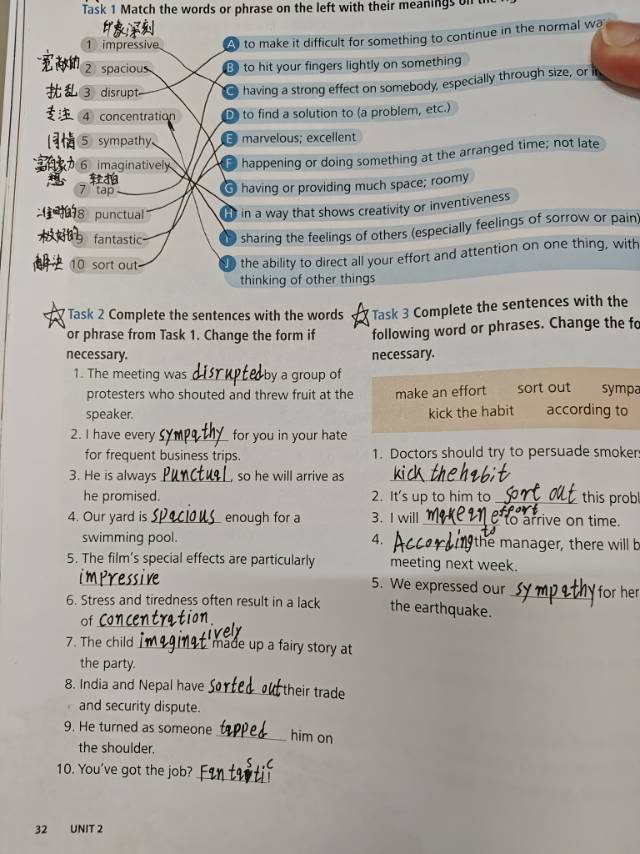 Task 1 Match the words or phrase on the left with their meanings on the
印象深刻
1 impressive
A to make it difficult for something to continue in the normal wa
宽敞的 2 spacious
B to hit your fingers lightly on something
扰乱 3 disrupt
C having a strong effect on somebody, especially through size, or i
专注 4 concentration
D to find a solution to (a problem, etc.)
同情 5 sympathy
E marvelous; excellent
6 imaginatively
F happening or doing something at the arranged time; not late
轻拍
7 tap
G having or providing much space; roomy
准时的 8 punctual
H in a way that shows creativity or inventiveness
极好的 9 fantastic
I sharing the feelings of others (especially feelings of sorrow or pain)
解决 10 sort out
J the ability to direct all your effort and attention on one thing, with
thinking of other things
Task 2 Complete the sentences with the words
or phrase from Task 1. Change the form if
necessary.
1. The meeting was disrupted by a group of
protesters who shouted and threw fruit at the
speaker.
2. I have every sympathy for you in your hate
for frequent business trips.
3. He is always punctual, so he will arrive as
he promised.
4. Our yard is spacious enough for a
swimming pool.
5. The film's special effects are particularly
impressive
6. Stress and tiredness often result in a lack
of concentration.
7. The child imaginatively made up a fairy story at
the party.
8. India and Nepal have sorted out their trade
and security dispute.
9. He turned as someone tapped him on
the shoulder.
10. You've got the job? Fantastic
Task 3 Complete the sentences with the
following word or phrases. Change the fo
necessary.
make an effort sort out sympa
kick the habit according to
1. Doctors should try to persuade smoker
kick the habit
2. It's up to him to sort out this probl
3. I will make an effort to arrive on time.
4. According to the manager, there will b
meeting next week.
5. We expressed our sympathy for her
the earthquake.
32 UNIT 2